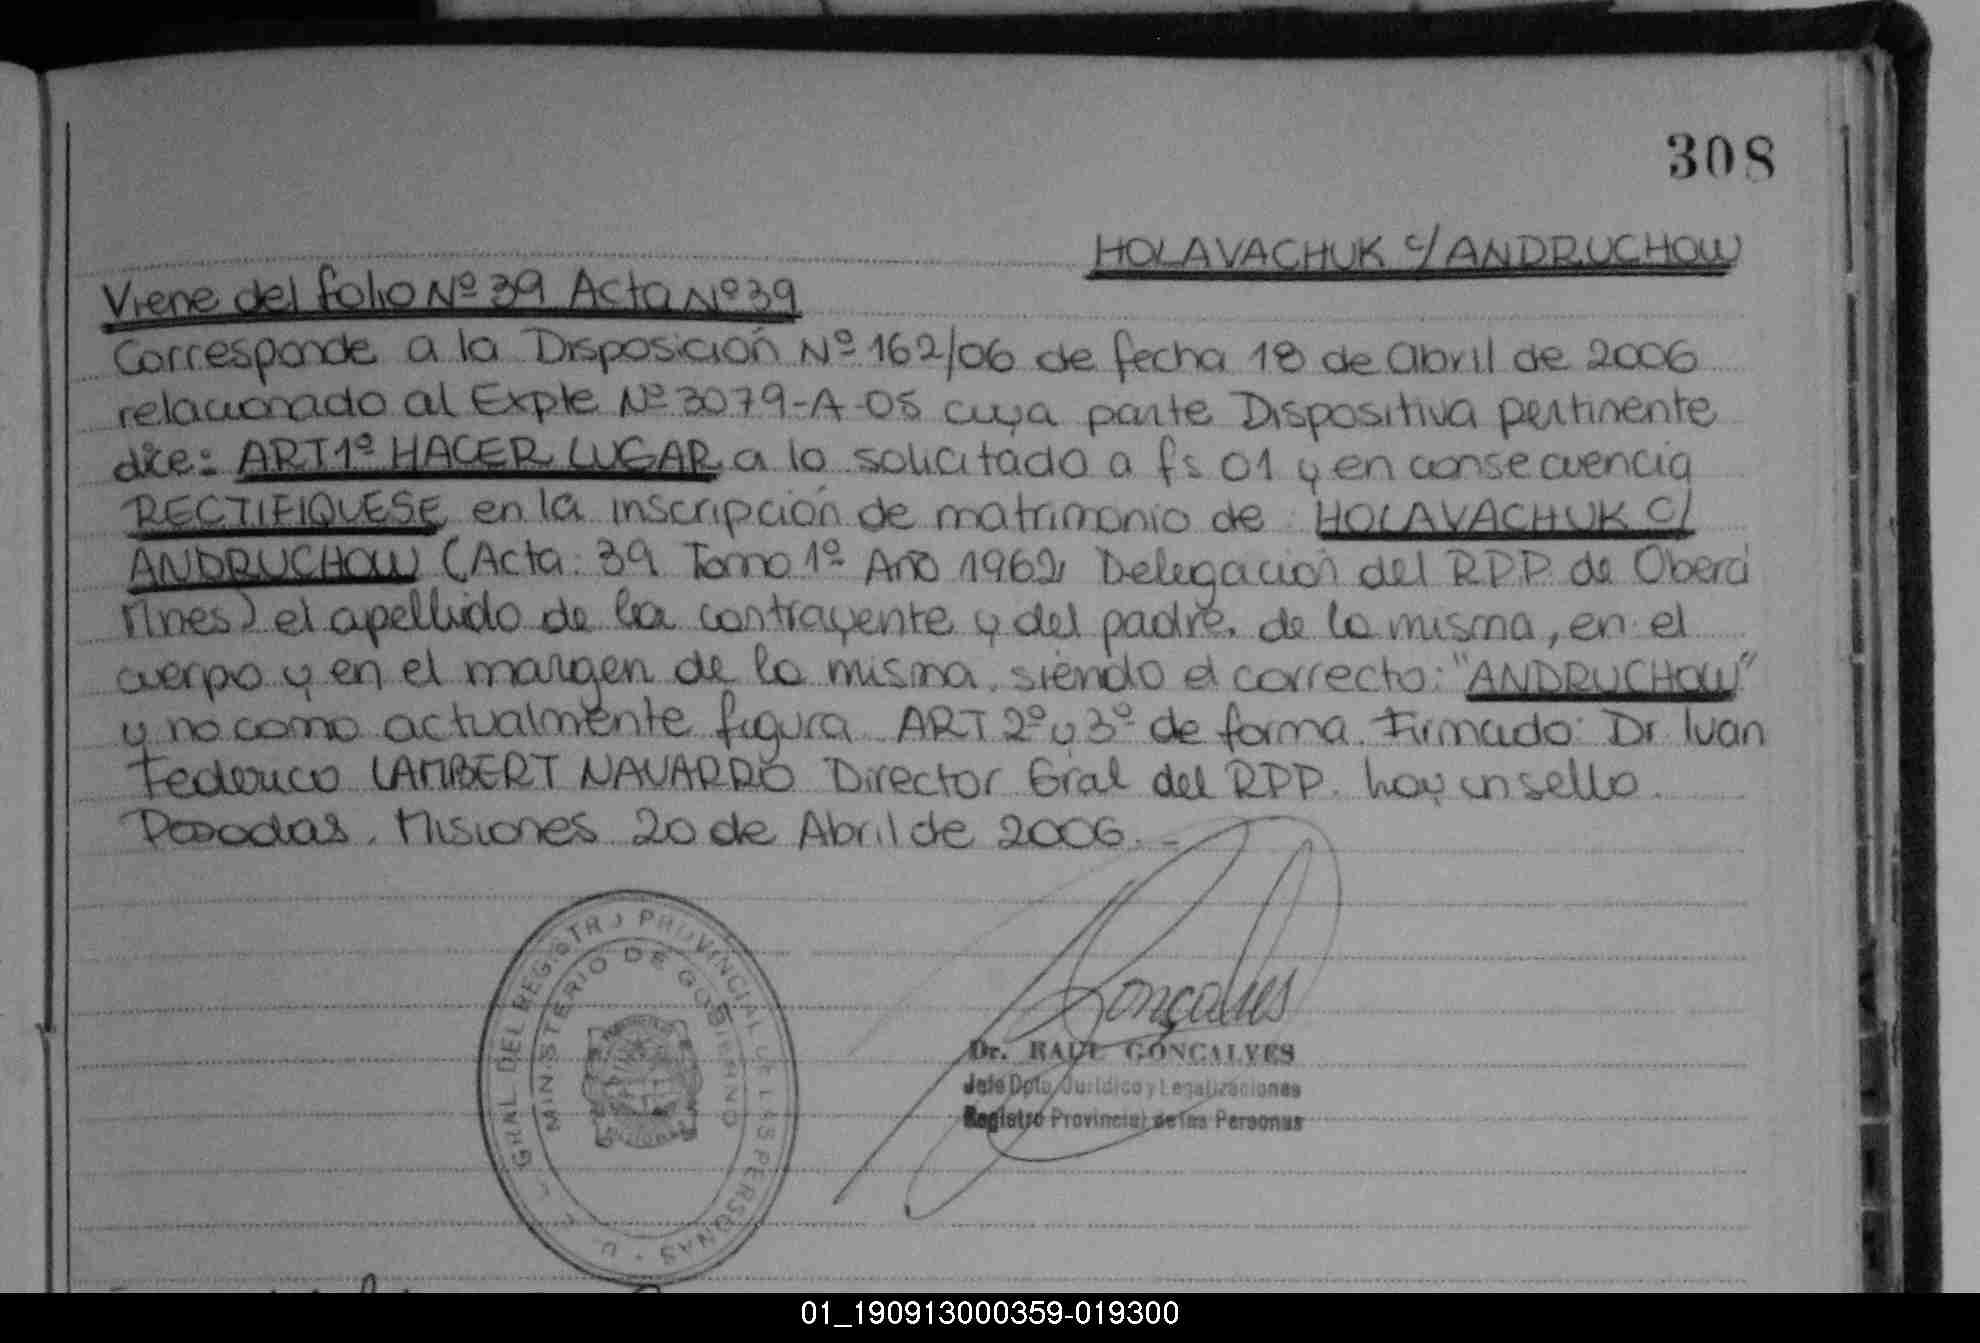 308
HOLAVACHUK c/ ANDRUCHOW
Viene del folio Nº 39 Acta Nº 39
Corresponde a la Disposición Nº 162/06 de fecha 18 de abril de 2006
relacionado al Expte Nº 3079-A-05 cuya parte Dispositiva pertinente
dice: ART 1º HACER LUGAR a lo solicitado a fs 01 y en consecuencia
RECTIFIQUESE en la inscripción de matrimonio de HOLAVACHUK C/
ANDRUCHOW (Acta: 39 Tomo 1º Año 1962, Delegación del RPP. de Oberá
Mnes) el apellido de la contrayente y del padre. de la misma, en el
cuerpo y en el margen de la misma. siendo el correcto: "ANDRUCHOW"
y no como actualmente figura. ART 2º y 3º de forma. Firmado: Dr. Ivan
Federico LAMBERT NAVARRO Director Gral del RPP. hay un sello.
Posadas. Misiones 20 de Abril de 2006.-
GRAL DEL REGISTRO PROVINCIAL DE LAS PERSONAS
MINISTERIO DE GOBIERNO
Goncalves
Dr. RAUL GONCALVES
Jefe Dpto. Jurídico y Legalizaciones
Registro Provincial de las Personas
01_190913000359-019300